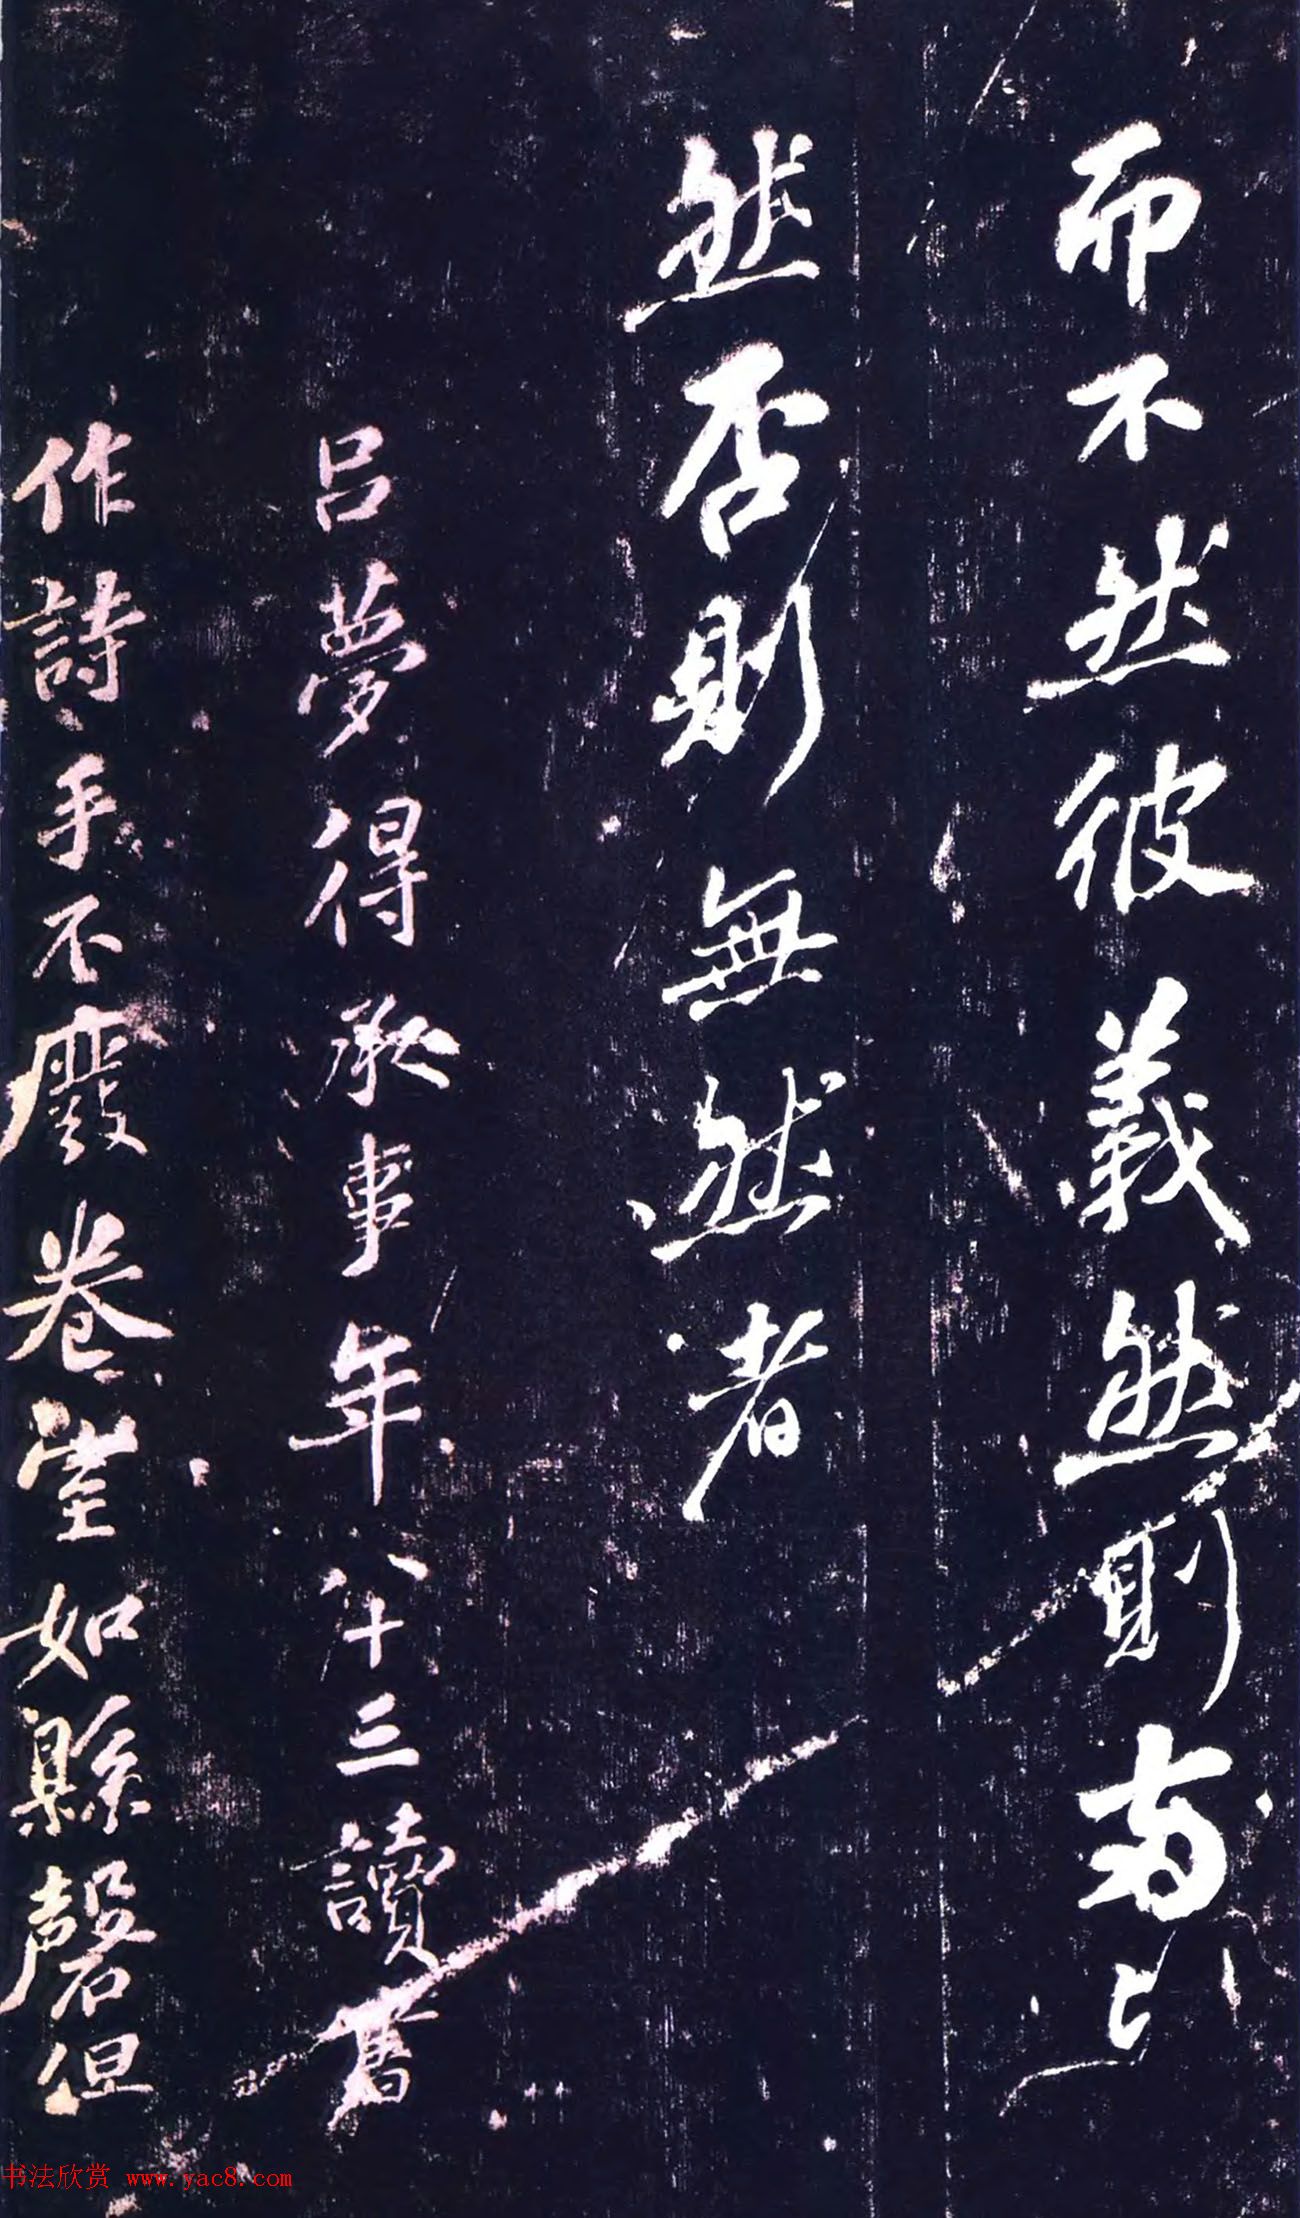 而不然彼義然則
然否則無然者
吕夢得承事年八十三讀書
作詩手不廢卷室如縣磬但
书法欣赏 www.yac8.com